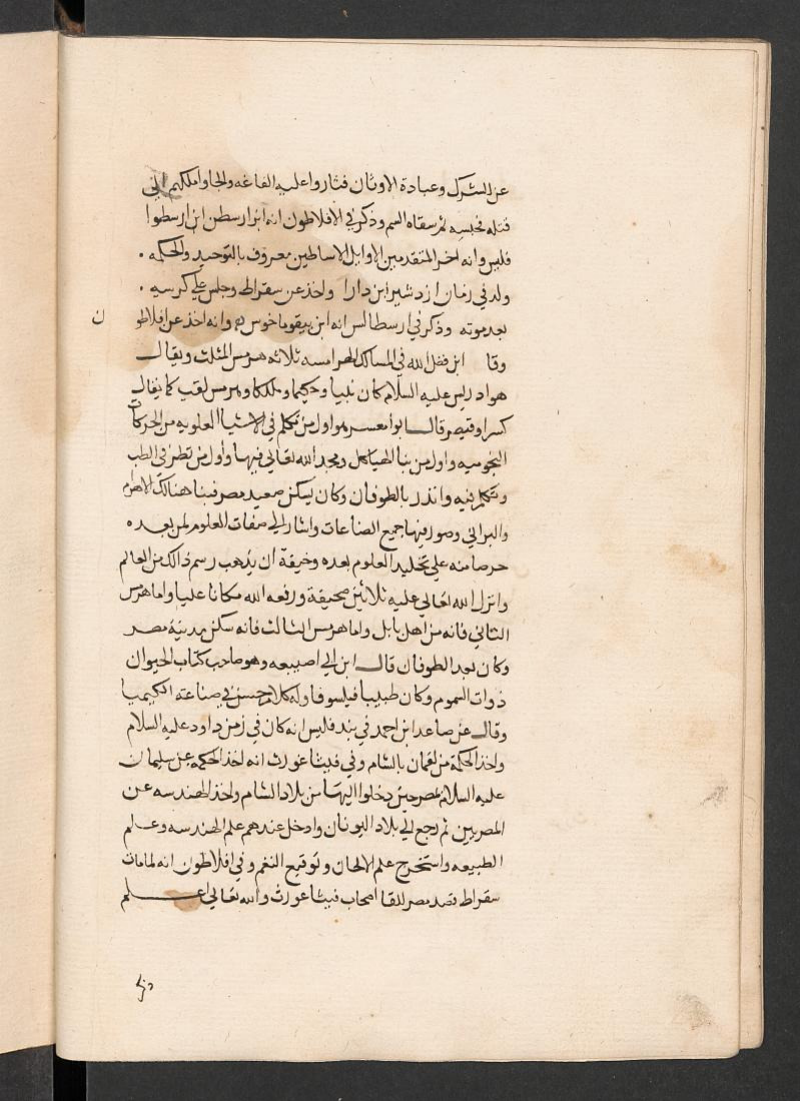 عن الشرك وعبادة الاوثان فثاروا عليه الغاغه والجاوا ملكهم الي
قتله فحبسه ثم سقاه السم وذكر في الافلاطون انه ابن ارسطن ابن ارسطوا
قليس وانه اخر المتقدمين الاوايل الاساطين معروف بالتوحيد والحكمه .
ولد في زمان ازدشير ابن دارا واخذ عن سقراط وجلس علي كرسيه .
بعد موته وذكر في ارسطالس انه ابن نيقوماخوس وانه اخذ عن افلاطو
ن
وقا ابن فضل الله في المسالك الهرامسه ثلاثه هرمس المثلث ويقال
هو ادريس عليه السلام كان نبيا وحكيما وملكا وهرمس لقب كما يقال
كسرا وقيصر قال ابوا معسر هو اول من تكلم في الاشيا العلويه من الحركات
النجوميه واول من بنا الهياكل ومجد الله تعالي فيها واول من نظر في الطب
وتكلم فيه وانذر بالطوفان وكان يسكن صعيد مصر فبنا هنالك الاهرم
والبرابي وصور فيها جميع الصناعات واشار الي صفات العلوم لمن بعده
حرصا منه علي تخليد العلوم بعده وخيفة ان يذهب رسم ذالك من العالم
وانزل الله تعالي عليه ثلاثين صحيفة ورفعه الله مكانا عليا واما هرمس
الثاني فانه من اهل بابل واما هرمس الثالث فانه سكن مدينة مصر
وكان بعد الطوفان قال ابن ابي اصيبعه وهو صاحب كتاب الحيوان
ذوات السموم وكان طبيبا فيلسوفا وله كلام حسن في صناعة الكيميا
وقال عن صاعد ابن احمد في بندقليس انه كان في زمن داود عليه السلام
واخذ الحكمة من لقمان بالشام وفي فيثاغورث انه اخذ الحكمه عن سليمان
عليه السلام بمصر حين دخلوا اليها من بلاد الشام واخذ الهندسه عن
المصريين ثم رجع الي بلاد اليونان وادخل عندهم علم الهندسه وعلم
الطبيعه واستخرج علم الالحان وتوقيع النغم وفي افلاطون انه لما مات
سقراط قصد مصر للقا اصحاب فيثاغورث والله تعالي اعلم